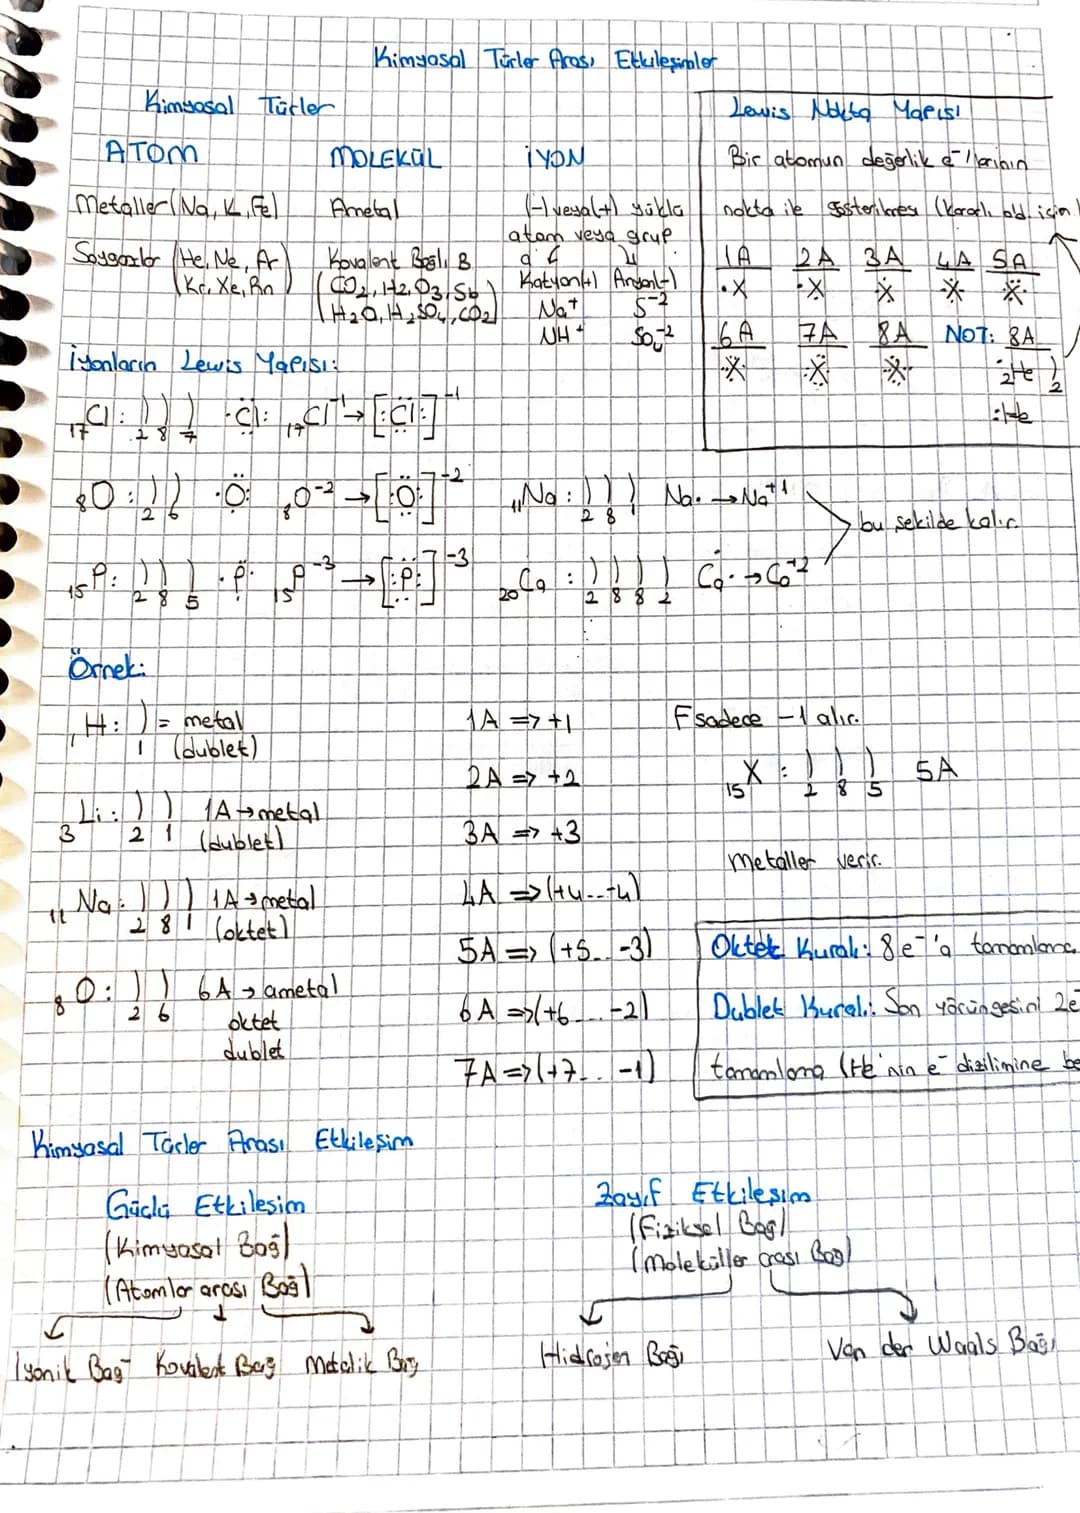 Kimyasal Türler Arası Etkileşimler
Kimyasal Türler
ATOM MOLEKÜL İYON
Metaller (Na, K, Fe) Ametal (-) veya (+) yüklü
atom veya grup
Soygazlar (He, Ne, Ar Kovalent Bağlı B
Kr, Xe, Rn) (CO2, H2, O3, S8 Katyon(+) Anyon(-)
H2O, H2SO4, CO2) Na+ S-2
NH+ SO4-2
Lewis Nokta Yapısı
Bir atomun değerlik e-'lerinin
nokta ile gösterilmesi (Kararlı old. için)
1A 2A 3A 4A 5A
·X ·X· X X X
6A 7A 8A NOT: 8A
X X X 2He ) 2
:He
İyonların Lewis Yapısı:
17Cl: ) ) ) 2 8 7 ·Cl: 17Cl-1 → [:Cl:]-1
8O: ) ) 2 6 ·O: 8O-2 → [:O:]-2 11Na: ) ) ) 2 8 1 Na· → Na+1
bu şekilde kalır.
15P: ) ) ) 2 8 5 ·P· 15P-3 → [:P:]-3 20Ca: ) ) ) ) 2 8 8 2 Ca· → Ca+2
Örnek:
1H: ) 1 = metal
(dublet)
3Li: ) ) 2 1 1A → metal
(dublet)
11Na: ) ) ) 2 8 1 1A → metal
(oktet)
8O: ) ) 2 6 6A → ametal
oktet
dublet
1A => +1
2A => +2
3A => +3
4A => (+4...-4)
5A => (+5...-3)
6A => (+6...-2)
7A => (+7...-1)
F sadece -1 alır.
15X: ) ) ) 2 8 5 5A
Metaller verir.
Oktet Kuralı: 8e-'a tamamlama
Dublet Kuralı: Son yörüngesini 2e-
tamamlama (He'nin e- dizilimine be
Kimyasal Türler Arası Etkileşim
Güçlü Etkileşim
(Kimyasal Bağ)
(Atomlar arası Bağ)
İyonik Bağ Kovalent Bağ Metalik Bağ
Zayıf Etkileşim
(Fiziksel Bağ)
(Moleküller arası Bağ)
Hidrojen Bağı Van der Waals Bağı